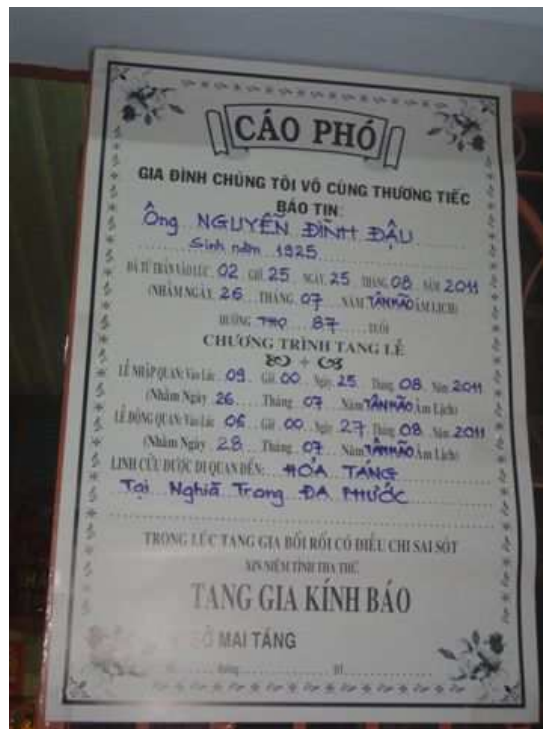 CÁO PHÓ
GIA ĐÌNH CHÚNG TÔI VÔ CÙNG THƯƠNG TIẾC
BÁO TIN:
Ông NGUYỄN ĐÌNH ĐẬU
Sinh năm 1925
ĐÃ TỪ TRẦN VÀO LÚC 02 GIỜ 25 NGÀY 25 THÁNG 08 NĂM 2011
(NHẰM NGÀY 26 THÁNG 07 NĂM TÂN MÃO ÂM LỊCH)
HƯỞNG THỌ 87 TUỔI
CHƯƠNG TRÌNH TANG LỄ
LỄ NHẬP QUAN: Vào Lúc 09 Giờ 00 Ngày 25 Tháng 08 Năm 2011
(Nhằm Ngày 26 Tháng 07 Năm TÂN MÃO Âm Lịch)
LỄ ĐỘNG QUAN: Vào Lúc 06 Giờ 00 Ngày 27 Tháng 08 Năm 2011
(Nhằm Ngày 28 Tháng 07 Năm TÂN MÃO Âm Lịch)
LINH CỬU ĐƯỢC DI QUAN ĐẾN: HỎA TÁNG
Tại Nghĩa Trang ĐA PHƯỚC
TRONG LÚC TANG GIA BỐI RỐI CÓ ĐIỀU CHI SAI SÓT
XIN NIỆM TÌNH THA THỨ
TANG GIA KÍNH BÁO
SỞ MAI TÁNG